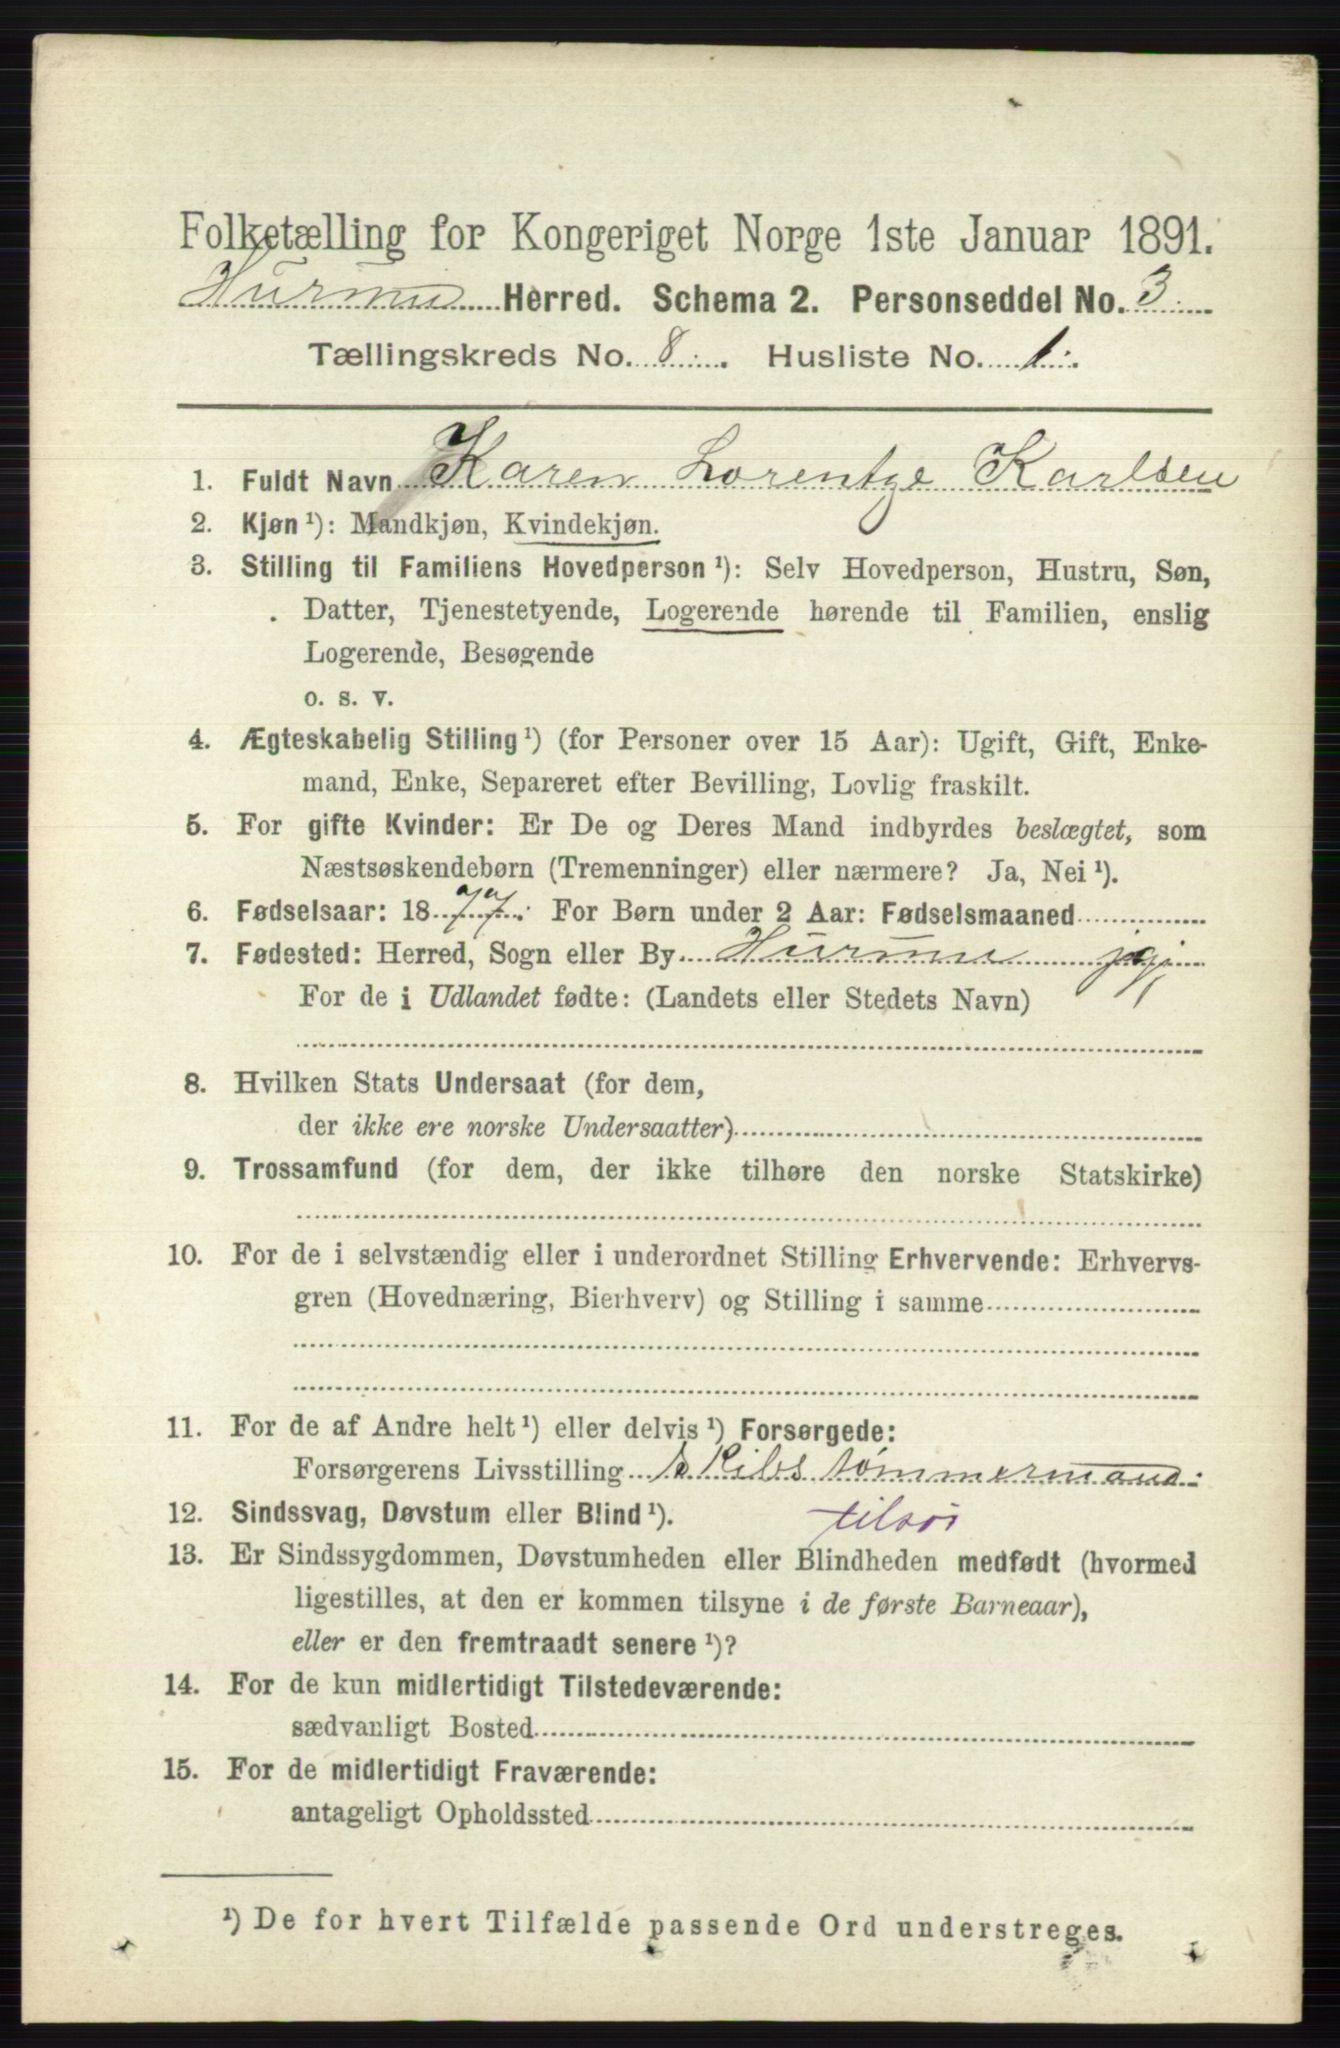 Folketælling for Kongeriget Norge 1ste Januar 1891.
Hurum Herred. Schema 2. Personseddel No. 3
Tællingskreds No. 8. Husliste No. 1.
1. Fuldt Navn Karen Lorentze Karlsen
2. Kjøn ¹): Mandkjøn, Kvindekjøn.
3. Stilling til Familiens Hovedperson ¹): Selv Hovedperson, Hustru, Søn,
Datter, Tjenestetyende, Logerende hørende til Familien, enslig
Logerende, Besøgende
o. s. v.
4. Ægteskabelig Stilling ¹) (for Personer over 15 Aar): Ugift, Gift, Enke-
mand, Enke, Separeret efter Bevilling, Lovlig fraskilt.
5. For gifte Kvinder: Er De og Deres Mand indbyrdes beslægtet, som
Næstsøskendebørn (Tremenninger) eller nærmere? Ja, Nei ¹).
6. Fødselsaar: 1877. For Børn under 2 Aar: Fødselsmaaned
7. Fødested: Herred, Sogn eller By Hurum
For de i Udlandet fødte: (Landets eller Stedets Navn)
8. Hvilken Stats Undersaat (for dem,
der ikke ere norske Undersaatter)
9. Trossamfund (for dem, der ikke tilhøre den norske Statskirke)
10. For de i selvstændig eller i underordnet Stilling Erhvervende: Erhvervs-
gren (Hovednæring, Bierhverv) og Stilling i samme
11. For de af Andre helt ¹) eller delvis ¹) Forsørgede:
Forsørgerens Livsstilling skibstømmermand.
12. Sindssvag, Døvstum eller Blind ¹). tilsøs
13. Er Sindssygdommen, Døvstumheden eller Blindheden medfødt (hvormed
ligestilles, at den er kommen tilsyne i de første Barneaar),
eller er den fremtraadt senere ¹)?
14. For de kun midlertidigt Tilstedeværende:
sædvanligt Bosted
15. For de midlertidigt Fraværende:
antageligt Opholdssted
¹) De for hvert Tilfælde passende Ord understreges.